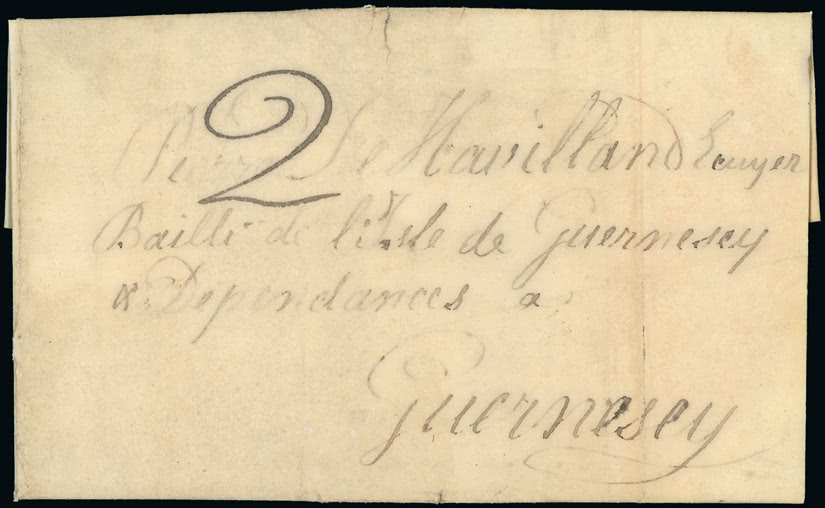 2
Pierre De Havilland Ecuyer
Bailli de l'Isle de Guernesey
& Dependances a
Guernesey